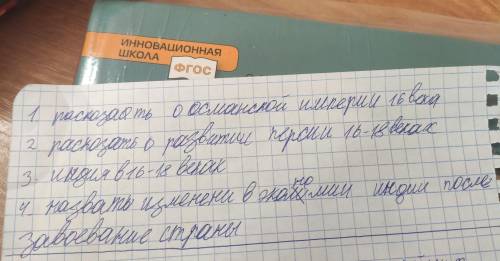 ИННОВАЦИОННАЯ
ШКОЛА
ФГОС
1 расказать о османской империи 16 века
2 расказать о развитии персии 16-18 веках
3. индия в 16-18 веках
4. назвать изменени в экономии индии после
завоевание страны